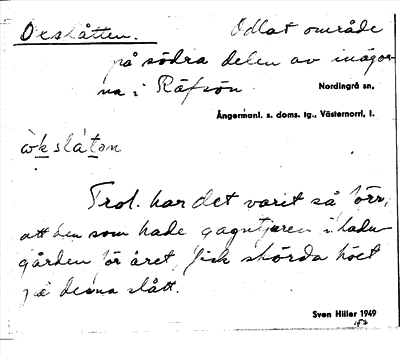 Oxslåtten. Odlat område
på södra delen av inägor-
na i Räfsön. Nordingrå sn,
Ångermanl. s. doms. tg., Västernorrl, l.
òkslátən
Trol. har det varit så förr,
att den som hade gagntjuren i ladu-
gården för året, fick skörda höet
på denna slått.
Sven Hiller 1949